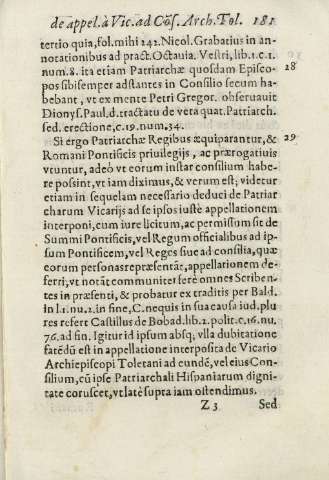 de appel. à Vic. ad Cōs. Arch. Tol. 181
tertio quia, fol. mihi 242. Nicol. Grabatius in an-
notationibus ad pract. Octauia. Vestri, lib. 1. c. 1.
num. 8. ita etiam Patriarchæ quosdam Episco- 28
pos sibi semper adstantes in Consilio secum ha-
bebant, vt ex mente Petri Gregor. obseruauit
Dionys. Paul. d. tractatu de vera quat. Patriarch.
sed. erectione, c. 19. num. 34.
Si ergo Patriarchæ Regibus æquiparantur, & 29
Romani Pontificis priuilegijs, ac prærogatiuis
vtuntur, adeò vt eorum instar consilium habe-
re possint, vt iam diximus, & verum est; videtur
etiam in sequelam necessario deduci de Patriar
charum Vicarijs ad se ipsos iustè appellationem
interponi, cum iure licitum, ac permissum sit de
Summi Pontificis, vel Regum officialibus ad ip-
sum Pontificem, vel Reges siue ad consilia, quæ
eorum personas repræsentāt, appellationem de-
ferri, vt notāt communiter ferè omnes Scriben-
tes in præsenti, & probatur ex traditis per Bald.
in l. 1. nu. 2. in fine, C. nequis in sua causa iud. plu
res refert Castillus de Bobad. lib. 2. polit. c. 16. nu.
76. ad fin. Igitur id ipsum absq; vlla dubitatione
fatēdū est in appellatione interposita de Vicario
Archiepiscopi Toletani ad eundē, vel eius Con-
silium, cū ipse Patriarchali Hispaniarum digni-
tate coruscet, vt latè supra iam ostendimus.
Z 3 Sed